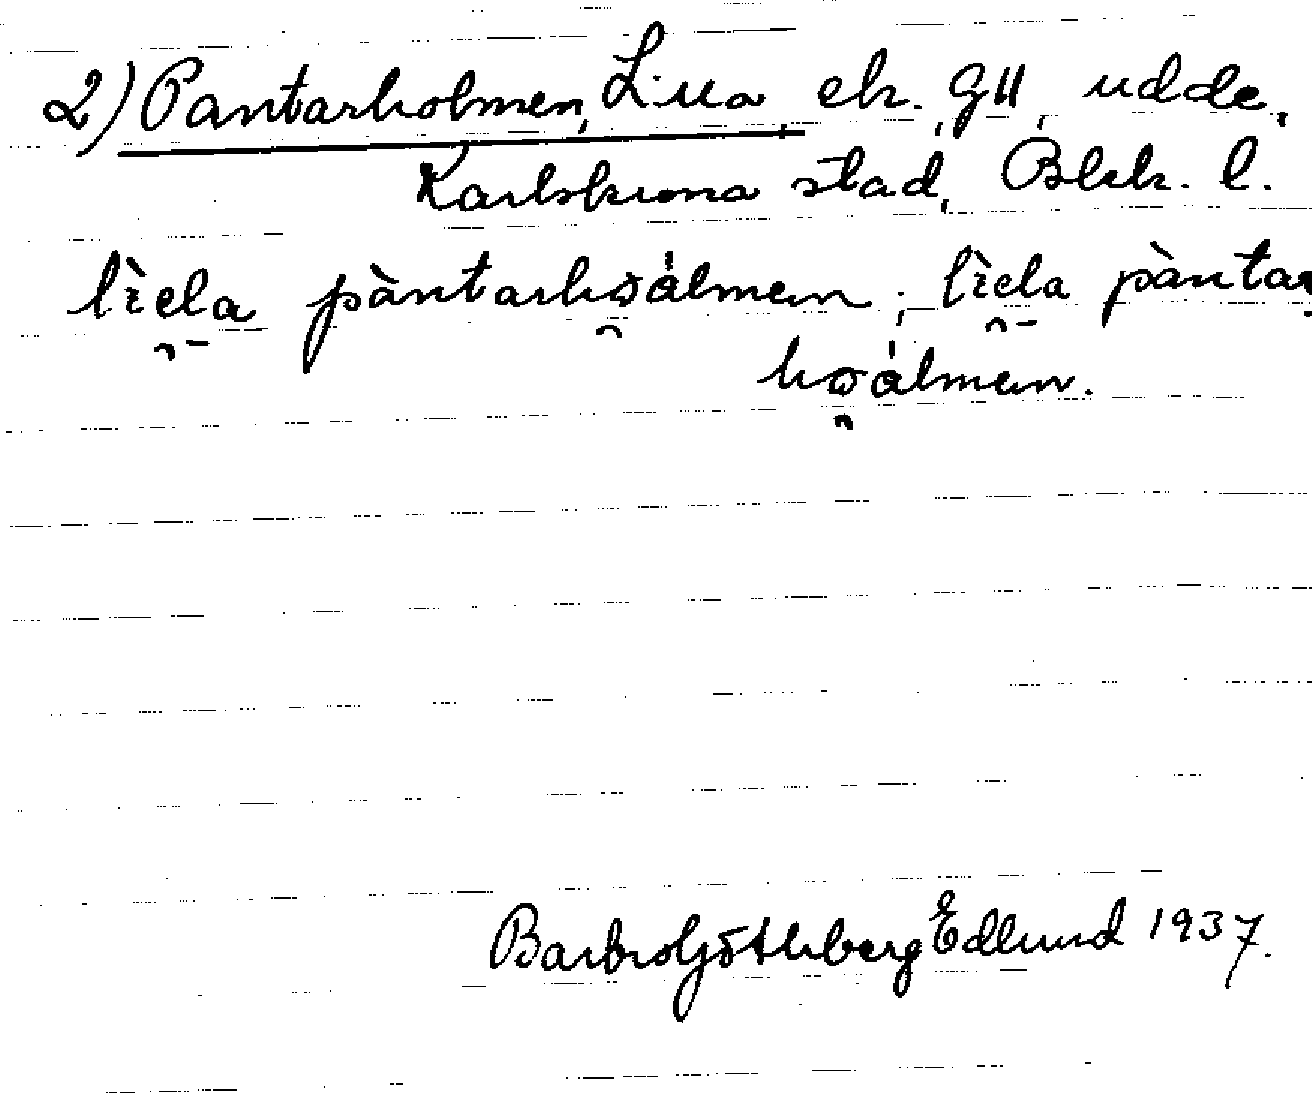 2) Pantarholmen, Lilla, ek. Gll, udde,
Karlskrona stad, Blek. l.
lìela pàntarhoálmen; lìela pàntar
hoálmen.
Barbro Göthberg Edlund 1937.